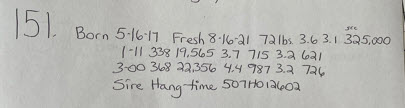 151. Born 5-16-17 Fresh 8-16-21 72 lbs. 3.6 3.1 scc 325,000
1-11 338 19,565 3.7 715 3.2 621
3-00 368 22,356 4.4 987 3.2 726
Sire Hang-time 507HO12602